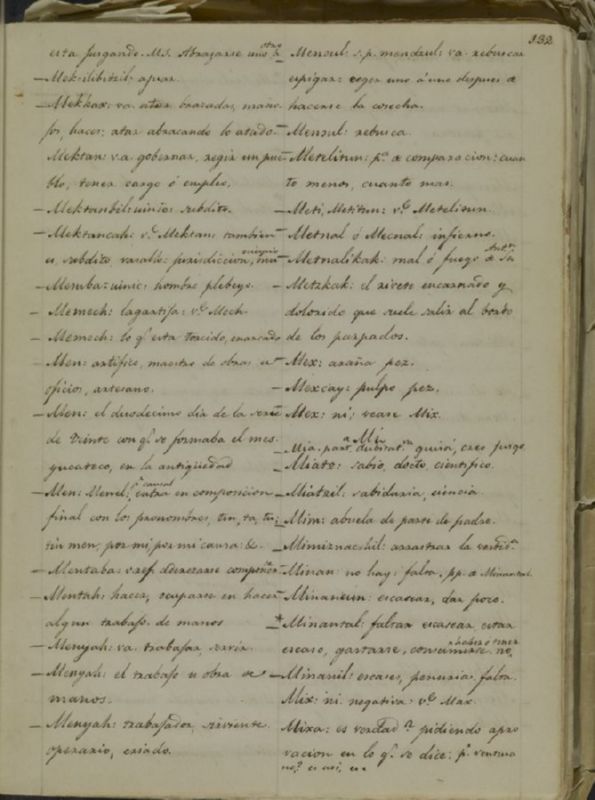 132
esta juzgando. MS. Abrazarse unos a otros
– Mek-ilibitzil: apear.
– Mekhax: va. atar brazadas, mano
jos, haces; atar abracando lo atado.
Mektan: v.a. gobernar, regir un pue
blo, tener cargo ó empleo.
– Mektanbil: uinic: subdito.
– Mektancah: v.e Mektan: tambien
es, subdito vasallo: jurisdiccion,
– Memba: uinic: hombre plebeyo.
– Memech: lagartija: v.e Mech.
– Memech: lo q.e esta torcido,
– Men: artifice, maestro de obras u
oficios, artesano.
– Men: el duodecimo dia de la serie
de veinte con q.e se formaba el mes
yucateco, en la antigüedad
– Men: Menel: p.a causal entra en composicion
final con los pronombres, tin, ta, tu;
tin men, por mi, por mi causa: &.
– Mentaba: v.ref. decretarse
– Mentah: hacer, ocuparse en hacer
algun trabajo de manos
– Menyah: va. trabajar, servir.
– Menyah: el trabajo u obra de
manos.
– Menyah: trabajador, sirviente
operario, criado.
– Mensul: s.p. mendzul: va. rebuscar
espigar: coger uno á uno despues de
hacerse la cosecha.
– Mensul: rebusca.
– Metelitun: p.a de comparacion: cuan
to menos, cuanto mas.
– Meti, Metitun: v.e Metelitun.
– Metnal ó Mecnal: infierno.
– Metnalikak: mal ó fuego de S.n Ant.n
– Metzkak: el rivete encarnado y
dolorido que suele salir al borde
de los parpados.
– Mex: araña pez.
– Mexcay: pulpo pez.
Mex: ni; vease Mix.
Mi
– Mia. part. dubitat.va quizá, creo juzgo
– Miatz: sabio, docto, cientifico.
– Miatzil: sabiduria, ciencia.
– Mim: abuela de parte de padre.
– Mimiznachil: arrastrar la
– Minan: no hay: falta. pp. a Minantal.
– Minancun: escasear, dar poco.
–* Minantal: faltar escasear estar
escaso, gastarse, consumirse. no haber o tener
– Minanil: escases, penuria, falta.
Mix: ni. negativa: v.e Max.
Mixa: es verdad? pidiendo apro
vacion en lo q.e se dice: p.r ventura
no? es asi,